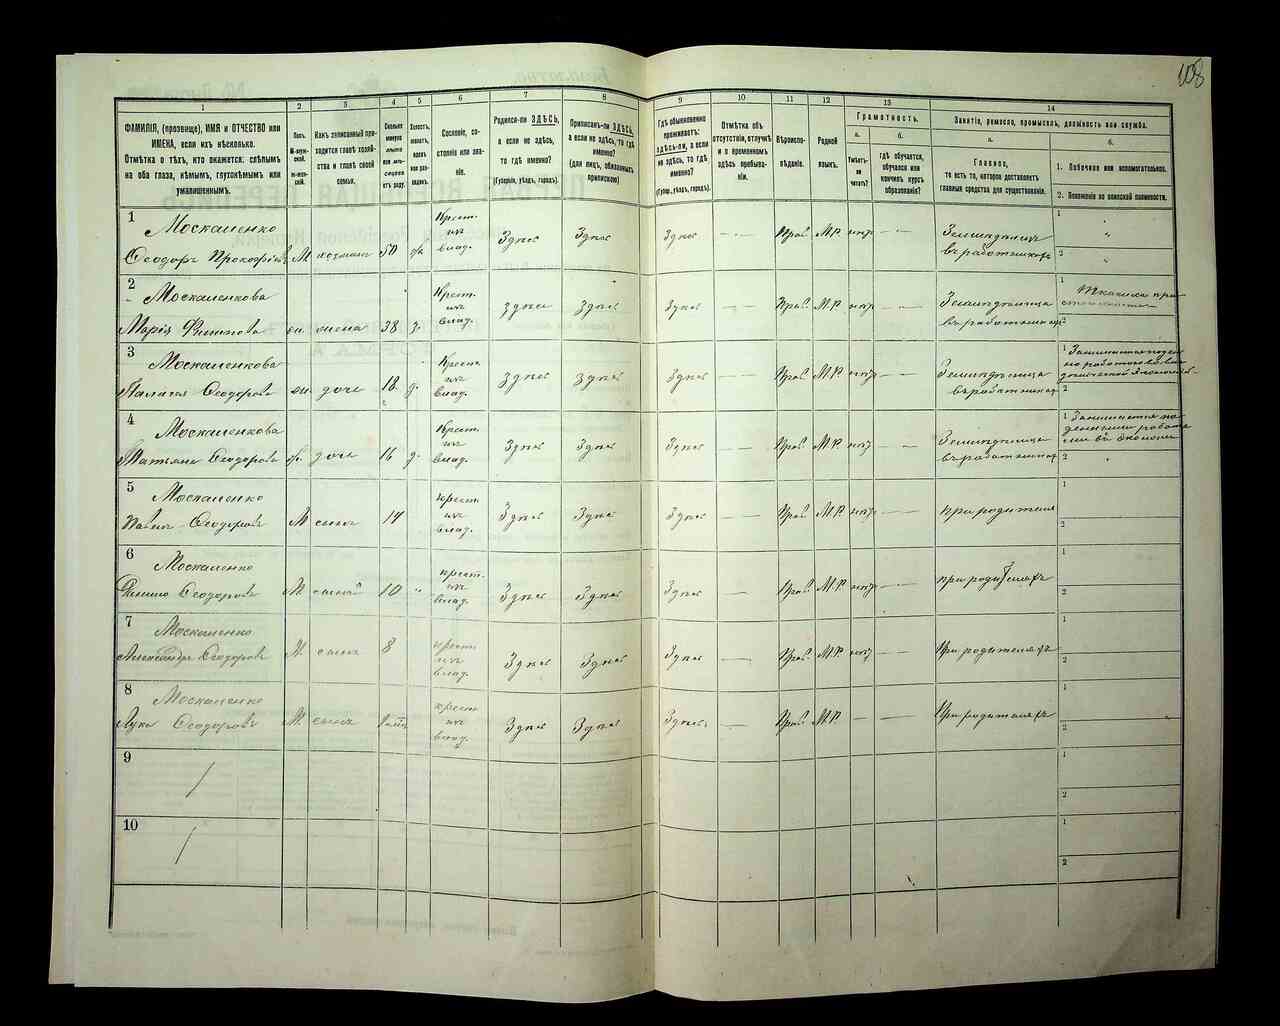 108
1
2
3
4
5
6
7
8
9
10
11
12
13
14
ФАМИЛІЯ, (прозвище), ИМЯ и ОТЧЕСТВО или
ИМЕНА, если ихъ нѣсколько.
Отмѣтка о тѣхъ, кто окажется: слѣпымъ
на оба глаза, нѣмымъ, глухонѣмымъ или
умалишеннымъ.
Полъ.
М-мужской.
Ж-женской.
Какъ записанный приходится
главѣ хозяйства
и главѣ своей
семьи.
Сколько
минуло
лѣтъ
или мѣсяцевъ
отъ роду.
Холостъ,
женатъ,
вдовъ
или разведенъ.
Сословіе, состояніе
или званіе.
Родился-ли ЗДѢСЬ,
а если не здѣсь,
то гдѣ именно?
(Губернія, уѣздъ, городъ).
Приписанъ-ли ЗДѢСЬ,
а если не здѣсь, то гдѣ
именно?
(для лицъ, обязанныхъ
припискою)
Гдѣ обыкновенно
проживаетъ:
здѣсь-ли, а если
не здѣсь, то гдѣ
именно?
(Губер., уѣздъ, городъ).
Отмѣтка объ
отсутствіи, отлучкѣ
и о временномъ
здѣсь пребываніи.
Вѣроисповѣданіе.
Родной
языкъ.
Грамотность.
а.
б.
Умѣетъ-ли
читать?
гдѣ обучается,
обучался или
кончилъ курсъ
образованія?
Занятіе, ремесло, промыселъ, должность или служба.
а.
б.
Главное,
то есть то, которое доставляетъ
главныя средства для существованія.
1. Побочное или вспомогательное.
2. Положеніе по воинской повинности.
1 Москаленко
Ѳеодоръ Прокофіевъ М хозяинъ 50 Крест. изъ влад. Здѣсь Здѣсь Здѣсь — Прав. М.Р. — Земледѣлецъ въ работникахъ
2 Москаленкова
Марія жена 38 з. Крест. изъ влад. здѣсь здѣсь Здѣсь — Прав. М.Р. Земледѣлица
3 Москаленкова
Ѳеодорова дочь 18 д. Крест. изъ влад. здѣсь здѣсь Здѣсь — Прав. М.Р. — Земледѣлица
4 Москаленкова
Татьяна Ѳеодорова дочь 16 д. Крест. изъ влад. Здѣсь Здѣсь Здѣсь — Прав. М.Р. — Земледѣлица Занимается поденными работами въ экономіи
5 Москаленко
Ѳеодоровъ М сынъ 14 крест. изъ влад. Здѣсь Здѣсь Здѣсь — Прав. М.Р. — при родителяхъ
6 Москаленко
Ѳеодоровъ М сынъ 10 крест. изъ влад. Здѣсь Здѣсь Здѣсь — Прав. М.Р. — при родителяхъ
7 Москаленко
Александръ Ѳеодоровъ М. сынъ 8 крест. изъ влад. Здѣсь Здѣсь Здѣсь — Прав. М.Р. — При родителяхъ
8 Москаленко
Лука Ѳеодоровъ М сынъ крест. изъ влад. Здѣсь Здѣсь Здѣсь — Прав. М.Р. — — При родителяхъ
9
10